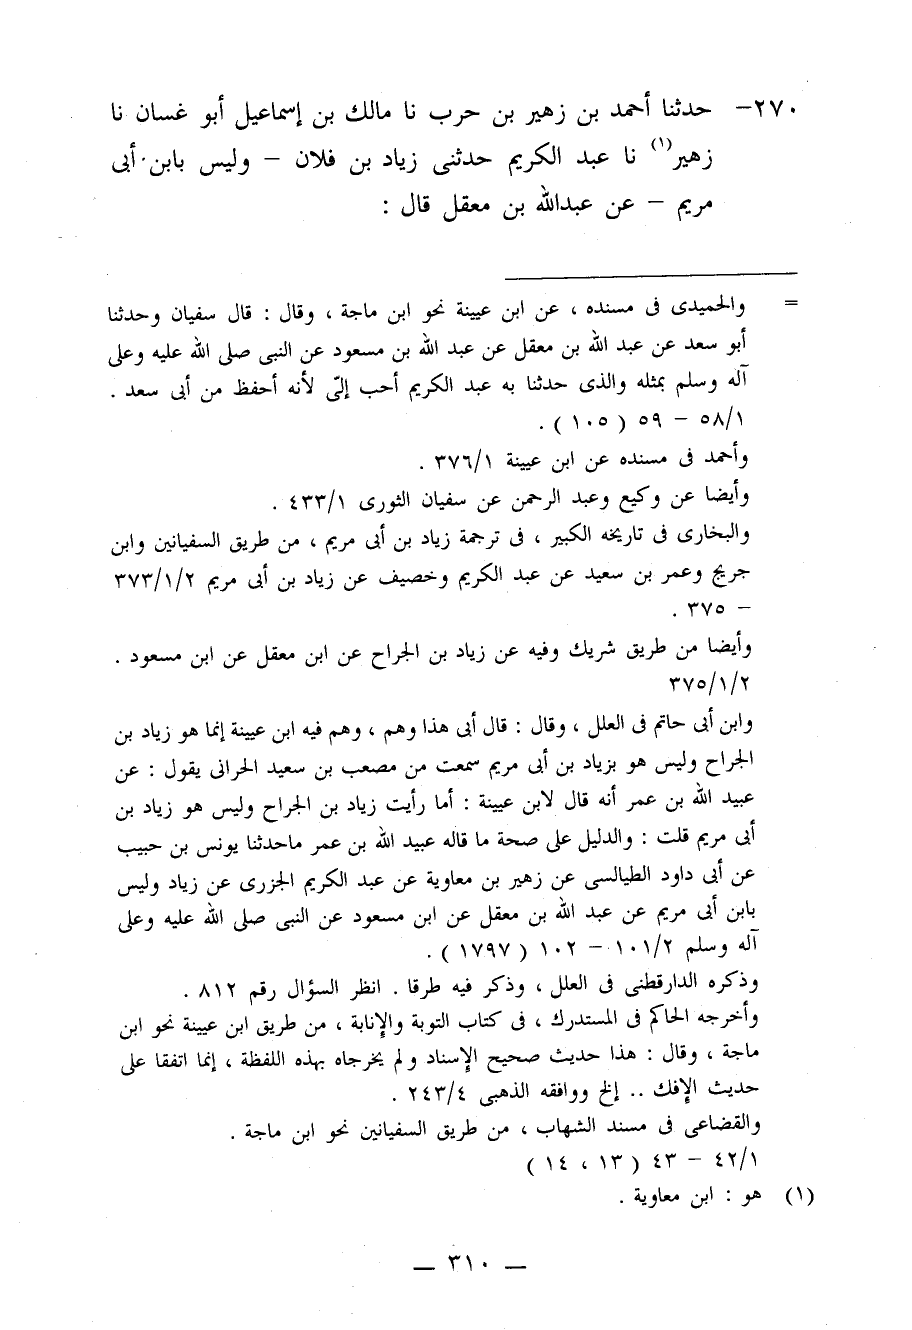 ٢٧٠- حدثنا أحمد بن زهير بن حرب نا مالك بن إسماعيل أبو غسان نا
زهير(١) نا عبد الكريم حدثنى زياد بن فلان – وليس بابن أبى
مريم – عن عبدالله بن معقل قال :
= والحميدى فى مسنده ، عن ابن عيينة نحو ابن ماجة ، وقال : قال سفيان وحدثنا
أبو سعد عن عبد الله بن معقل عن عبد الله بن مسعود عن النبى صلى الله عليه وعلى
آله وسلم بمثله والذى حدثنا به عبد الكريم أحب إلىّ لأنه أحفظ من أبى سعد .
٥٨/١ – ٥٩ ( ١٠٥ ) .
وأحمد فى مسنده عن ابن عيينة ٣٧٦/١ .
وأيضا عن وكيع وعبد الرحمن عن سفيان الثورى ٤٣٣/١ .
والبخارى فى تاريخه الكبير ، فى ترجمة زياد بن أبى مريم ، من طريق السفيانين وابن
جريج وعمر بن سعيد عن عبد الكريم وخصيف عن زياد بن أبى مريم ٣٧٣/١/٢
– ٣٧٥ .
وأيضا من طريق شريك وفيه عن زياد بن الجراح عن ابن معقل عن ابن مسعود .
٣٧٥/١/٢
وابن أبى حاتم فى العلل ، وقال : قال أبى هذا وهم ، وهم فيه ابن عيينة إنما هو زياد بن
الجراح وليس هو بزياد بن أبى مريم سمعت من مصعب بن سعيد الحرانى يقول : عن
عبيد الله بن عمر أنه قال لابن عيينة : أما رأيت زياد بن الجراح وليس هو زياد بن
أبى مريم قلت : والدليل على صحة ما قاله عبيد الله بن عمر ماحدثنا يونس بن حبيب
عن أبى داود الطيالسى عن زهير بن معاوية عن عبد الكريم الجزرى عن زياد وليس
بابن أبى مريم عن عبد الله بن معقل عن ابن مسعود عن النبى صلى الله عليه وعلى
آله وسلم ١٠١/٢ – ١٠٢ ( ١٧٩٧ ) .
وذكره الدارقطنى فى العلل ، وذكر فيه طرقا . انظر السؤال رقم ٨١٢ .
وأخرجه الحاكم فى المستدرك ، فى كتاب التوبة والإنابة ، من طريق ابن عيينة نحو ابن
ماجة ، وقال : هذا حديث صحيح الإسناد ولم يخرجاه بهذه اللفظة ، إنما اتفقا على
حديث الإفك .. إلخ ووافقه الذهبى ٢٤٣/٤ .
والقضاعى فى مسند الشهاب ، من طريق السفيانين نحو ابن ماجة .
٤٢/١ – ٤٣ ( ١٣ ، ١٤ )
(١) هو : ابن معاوية .
– ٣١٠ –